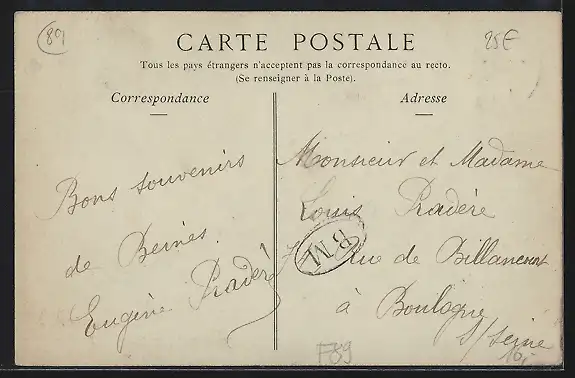 89
25€
CARTE POSTALE
Tous les pays étrangers n'acceptent pas la correspondance au recto.
(Se renseigner à la Poste).
Correspondance
Bons souvenirs
de Beines.
Eugène Pradère
Adresse
Monsieur et Madame
Louis Pradère
BM
Rue de Billancourt
à Boulogne
s/ Seine
F89